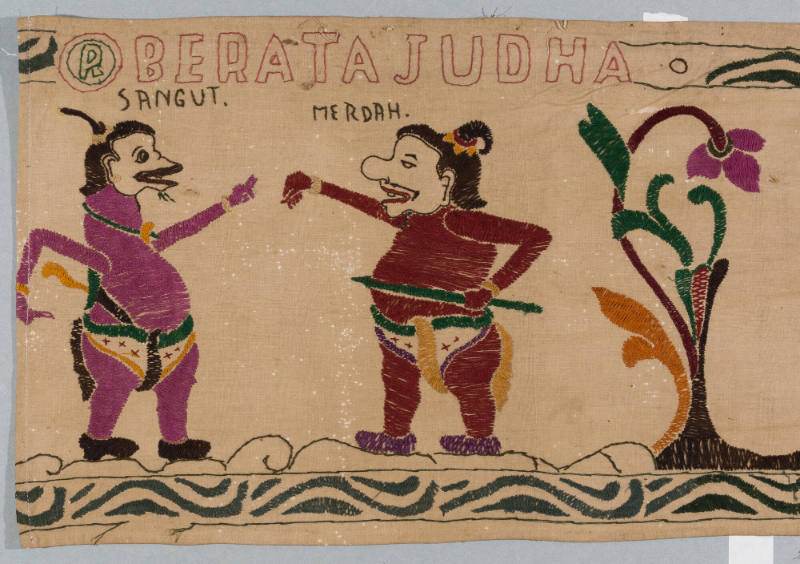 R BERATAJUDHA
SANGUT.
MERDAH.